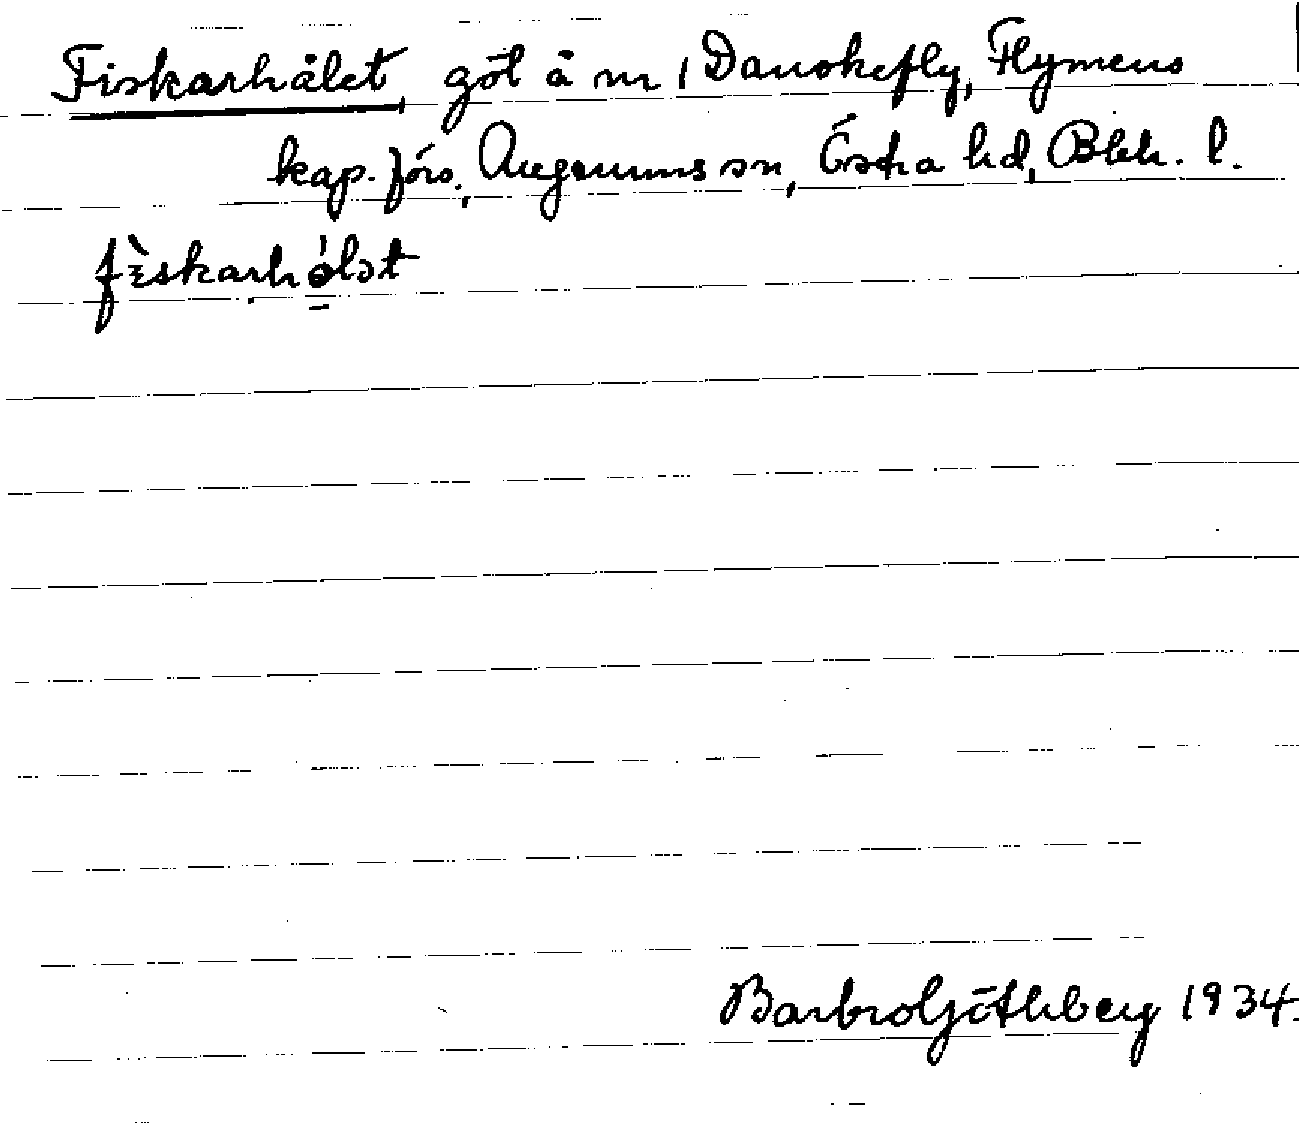 Fiskarhålet, göl å m 1 Danskefly, Flymens
kap. förs., Augerums sn, Östra hd, Blek. l.
fìskarhólət
Barbro Götlberg 1934.